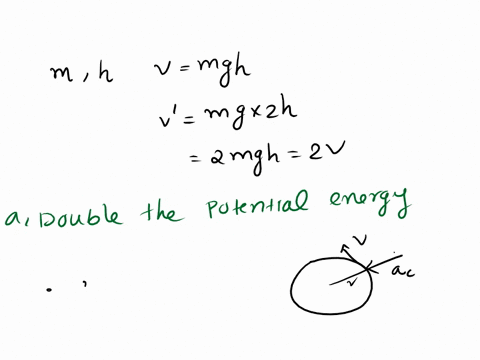 m, h    v = mgh
v' = mg×2h
= 2mgh = 2v
a, Double the potential energy
v
r
ac